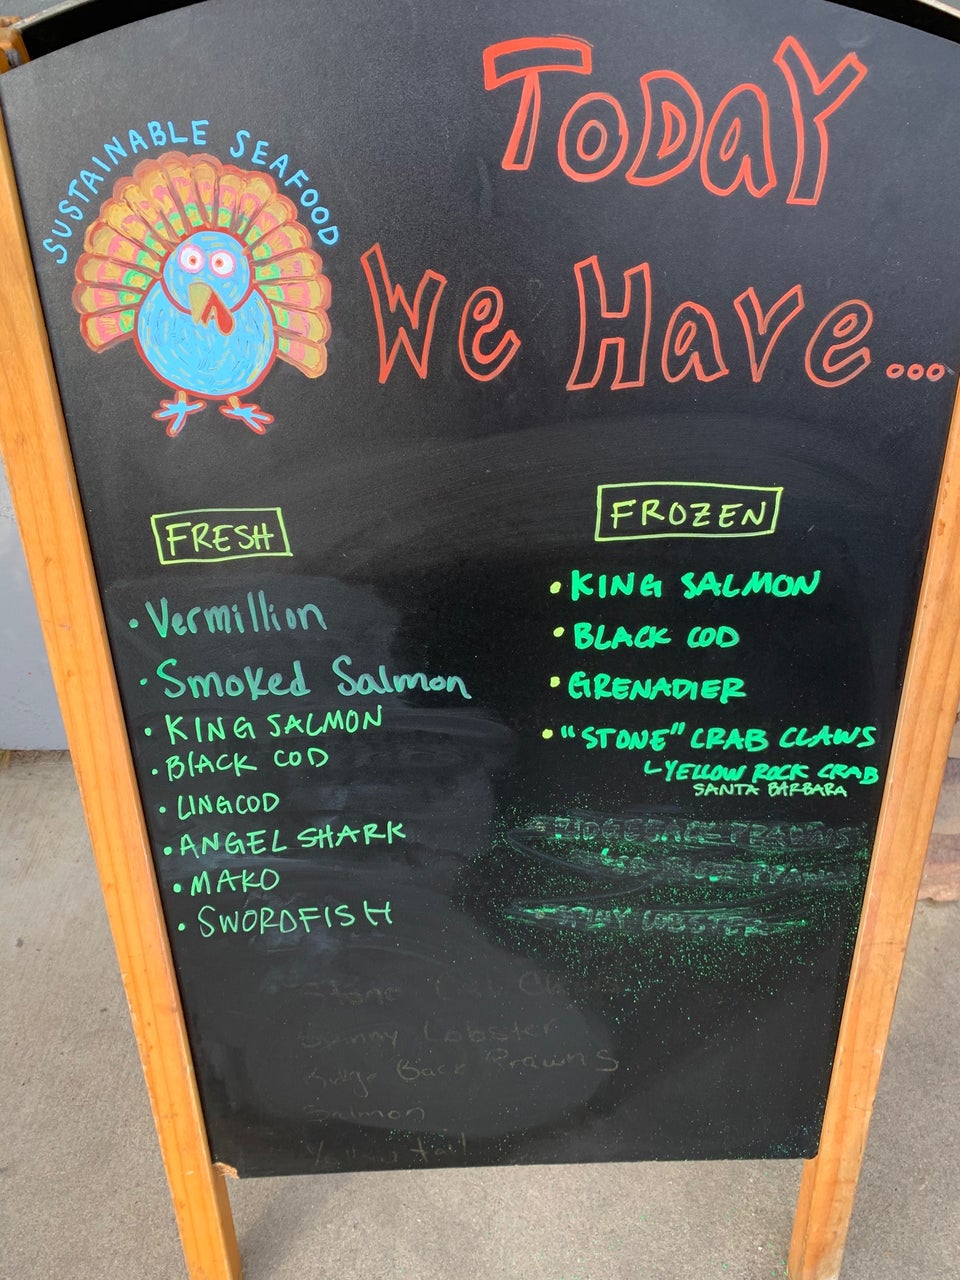 SUSTAINABLE SEAFOOD
TODAY
We Have...
FRESH
• Vermillion
• Smoked Salmon
• KING SALMON
• BLACK COD
• LINGCOD
• ANGEL SHARK
• MAKO
• SWORDFISH
FROZEN
• KING SALMON
• BLACK COD
• GRENADIER
• "STONE" CRAB CLAWS
YELLOW ROCK CRAB
SANTA BARBARA
LOBSTER
Stone
Lobster
Back Prawns
Salmon